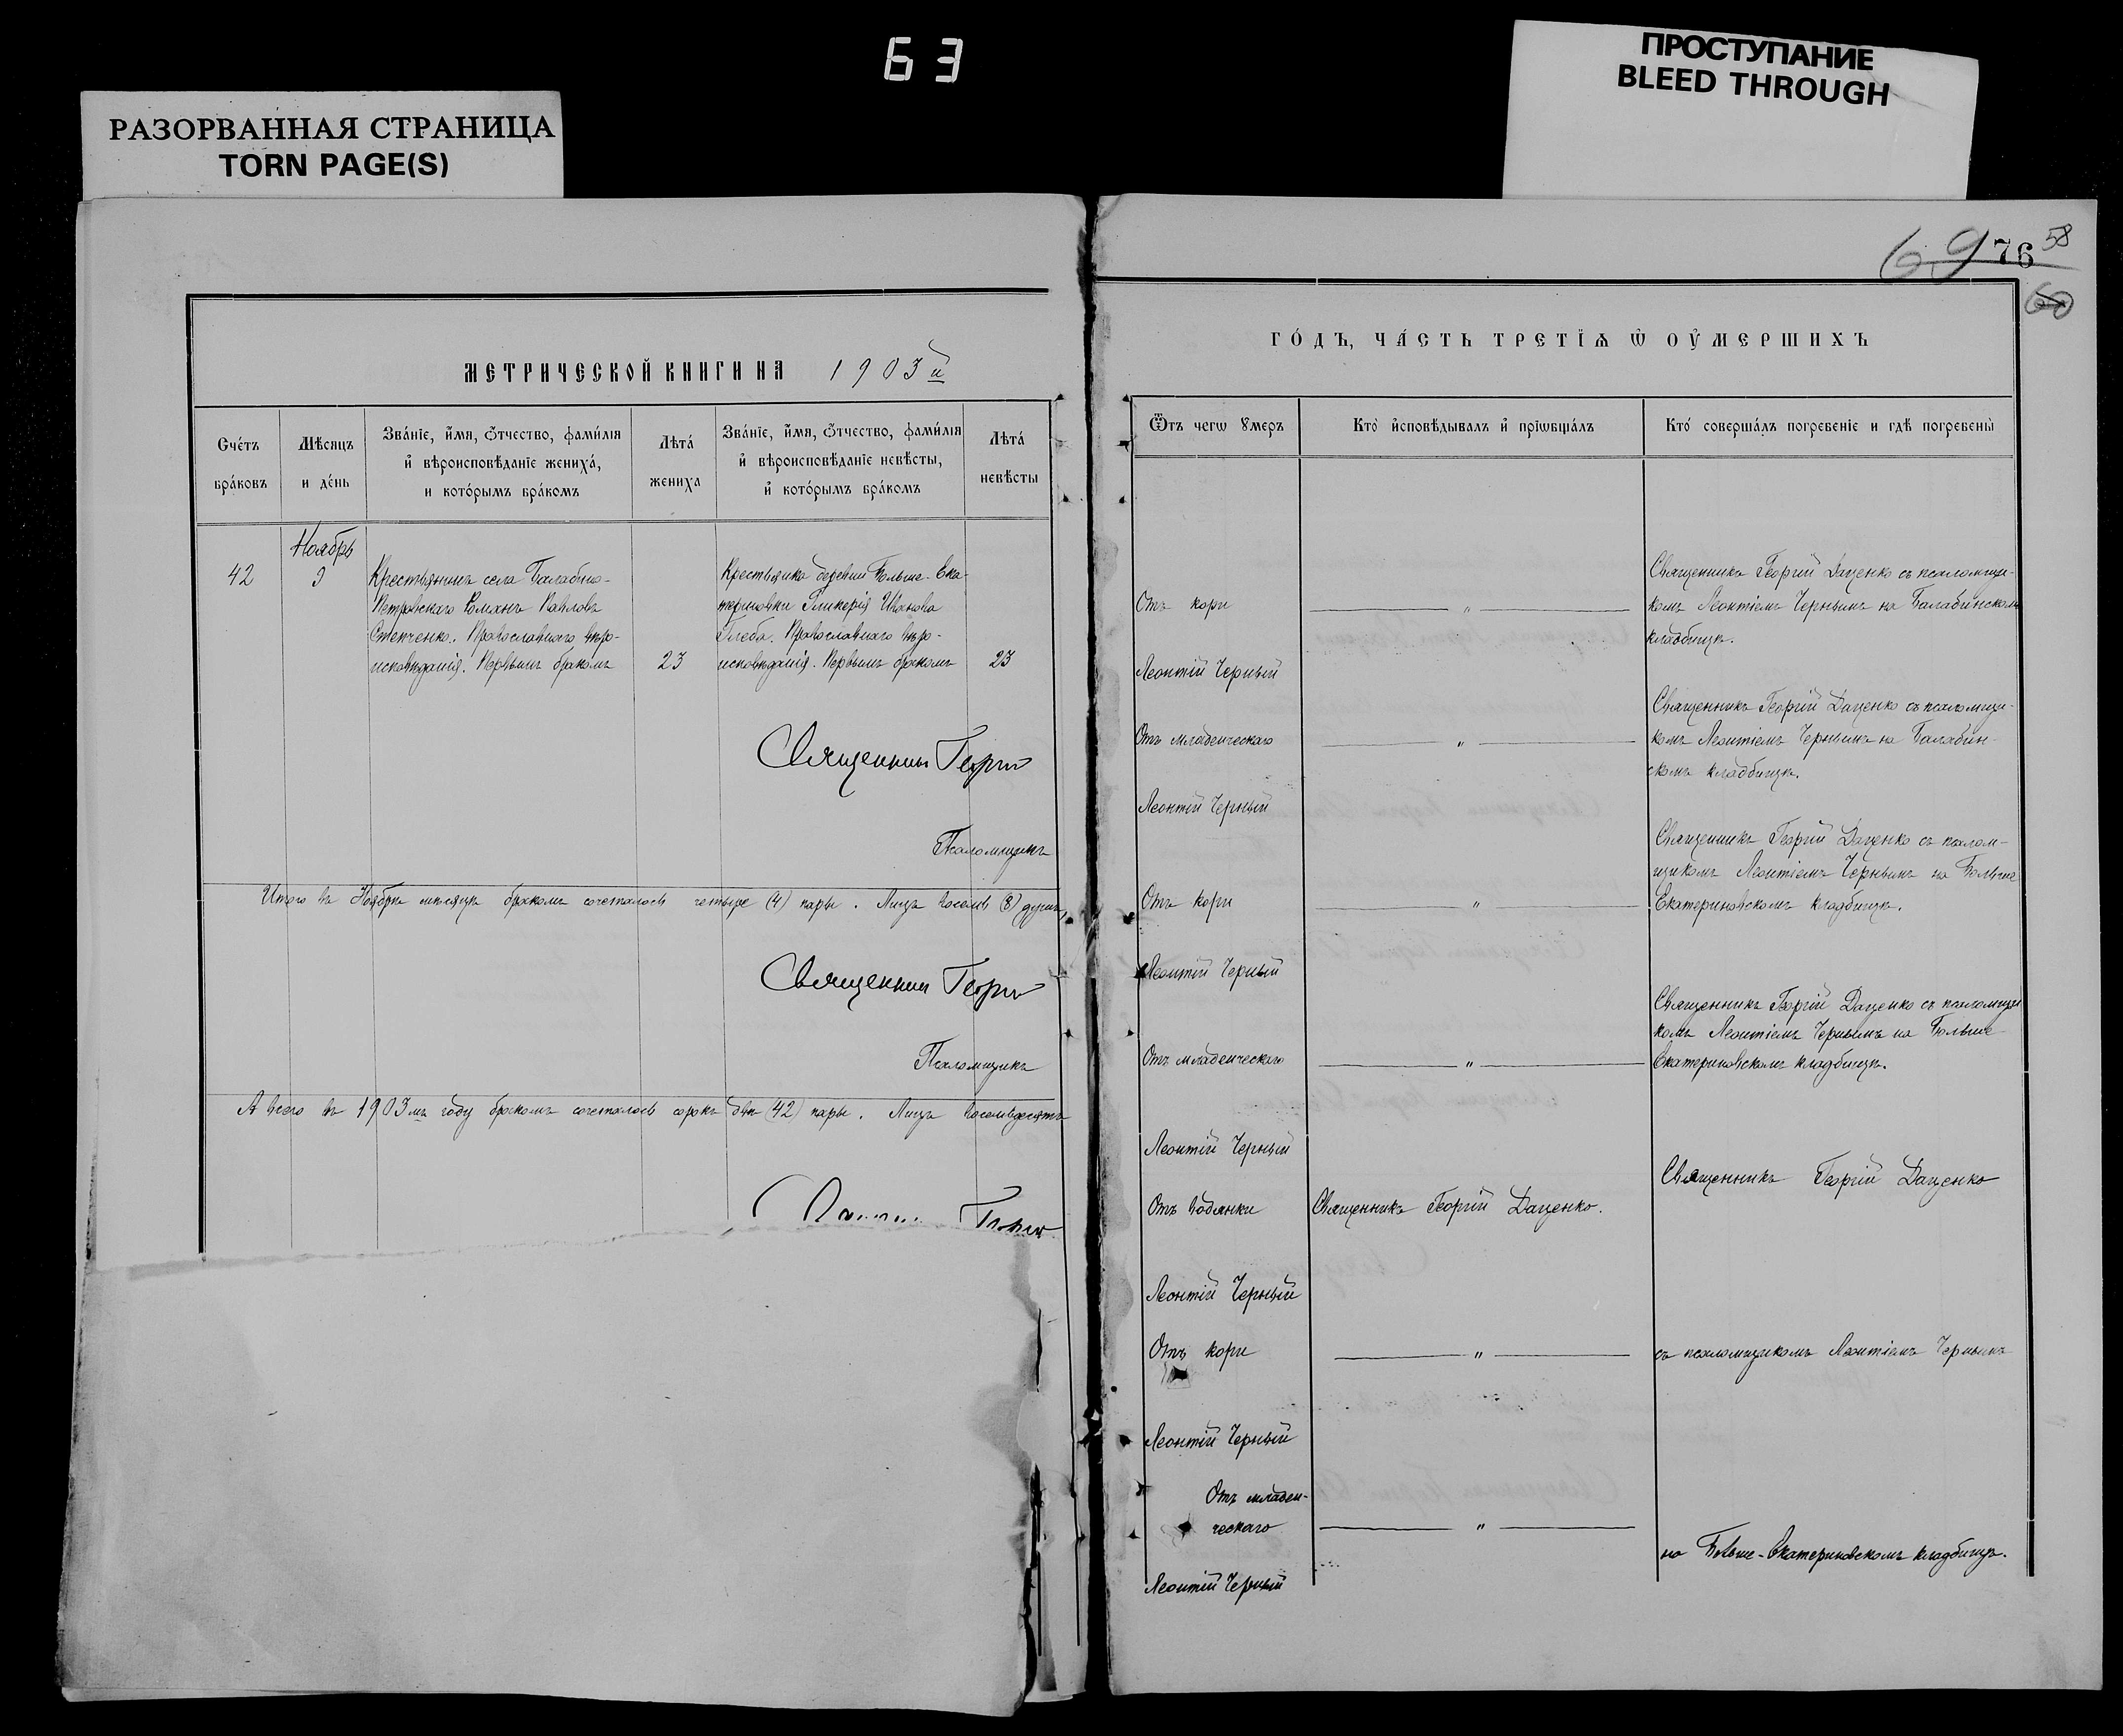 63
РАЗОРВАННАЯ СТРАНИЦА
TORN PAGE(S)
ПРОСТУПАНИЕ
BLEED THROUGH
МЕТРИЧЕСКОЙ КНИГИ НА 1903й
Сче́тъ
бра́ковъ
Мѣсяцъ
и де́нь
Зва́нїе, и҆́мя, ѻ҆́тчество, фами́лїя
и҆ вѣроисповѣ́данїе жениха́,
и кото́рымъ бра́комъ
Лѣта́
жениха
Зва́нїе, и҆́мя, ѻ҆́тчество, фами́лїя
и҆ вѣроисповѣ́данїе невѣ́сты,
и҆ кото́рымъ бра́комъ
Лѣта́
невѣ́сты
Ноябрь
42
9
Крестьянинъ села Балабино-
Петровскаго Романъ Павловъ
Степченко. Православнаго вѣро-
исповѣданія. Первымъ бракомъ
23
Крестьянка деревни Больше-Ека-
териновки Гликерія Иванова
Глеба. Православнаго вѣро-
исповѣданія. Первымъ бракомъ
23
Священникъ Георгій
Псаломщикъ
Итого въ Ноябрѣ мѣсяцѣ бракомъ сочеталось четыре (4) пары. Лицъ восемь (8) душъ,
Священникъ Георгій
Псаломщикъ
А всего въ 1903мъ году бракомъ сочеталось сорокъ двѣ (42) пары. Лицъ восемьдесятъ
69 76 58
60
ГО́ДЪ, ЧА́СТЬ ТРЕТЇѦ Ѡ҆ ОУ҆МЕРШИХЪ
Ѿъ чегѡ ᲂумеръ
Кто̀ и҆сповѣ́дывалъ и҆ прїѡбща́лъ
Кто́ соверша́лъ погребенїе и гдѣ̀ погребены̀
Отъ кори
"
Священникъ Георгій Даценко съ псаломщи-
комъ Леонтіемъ Чернымъ на Балабинскомъ
кладбищѣ.
Леонтій Черный
Отъ младенческаго
"
Священникъ Георгій Даценко съ псаломщи-
комъ Леонтіемъ Чернымъ на Балабин-
скомъ кладбищѣ.
Леонтій Черный
Отъ кори
"
Священникъ Георгій Даценко съ псалом-
щикомъ Леонтіемъ Чернымъ на Больше
Екатериновскомъ кладбищѣ.
Леонтій Черный
Отъ младенческаго
"
Священникъ Георгій Даценко съ псаломщи
комъ Леонтіемъ Чернымъ на Больше-
Екатериновскомъ кладбищѣ.
Леонтій Черный
Отъ водянки
Священникъ Георгій Даценко.
Священникъ Георгій Даценко
Леонтій Черный
Отъ кори
"
съ псаломщикомъ Леонтіемъ Чернымъ
Леонтій Черный
Отъ младен-
ческаго
"
на Больше-Екатериновскомъ кладбищѣ.
Леонтій Черный